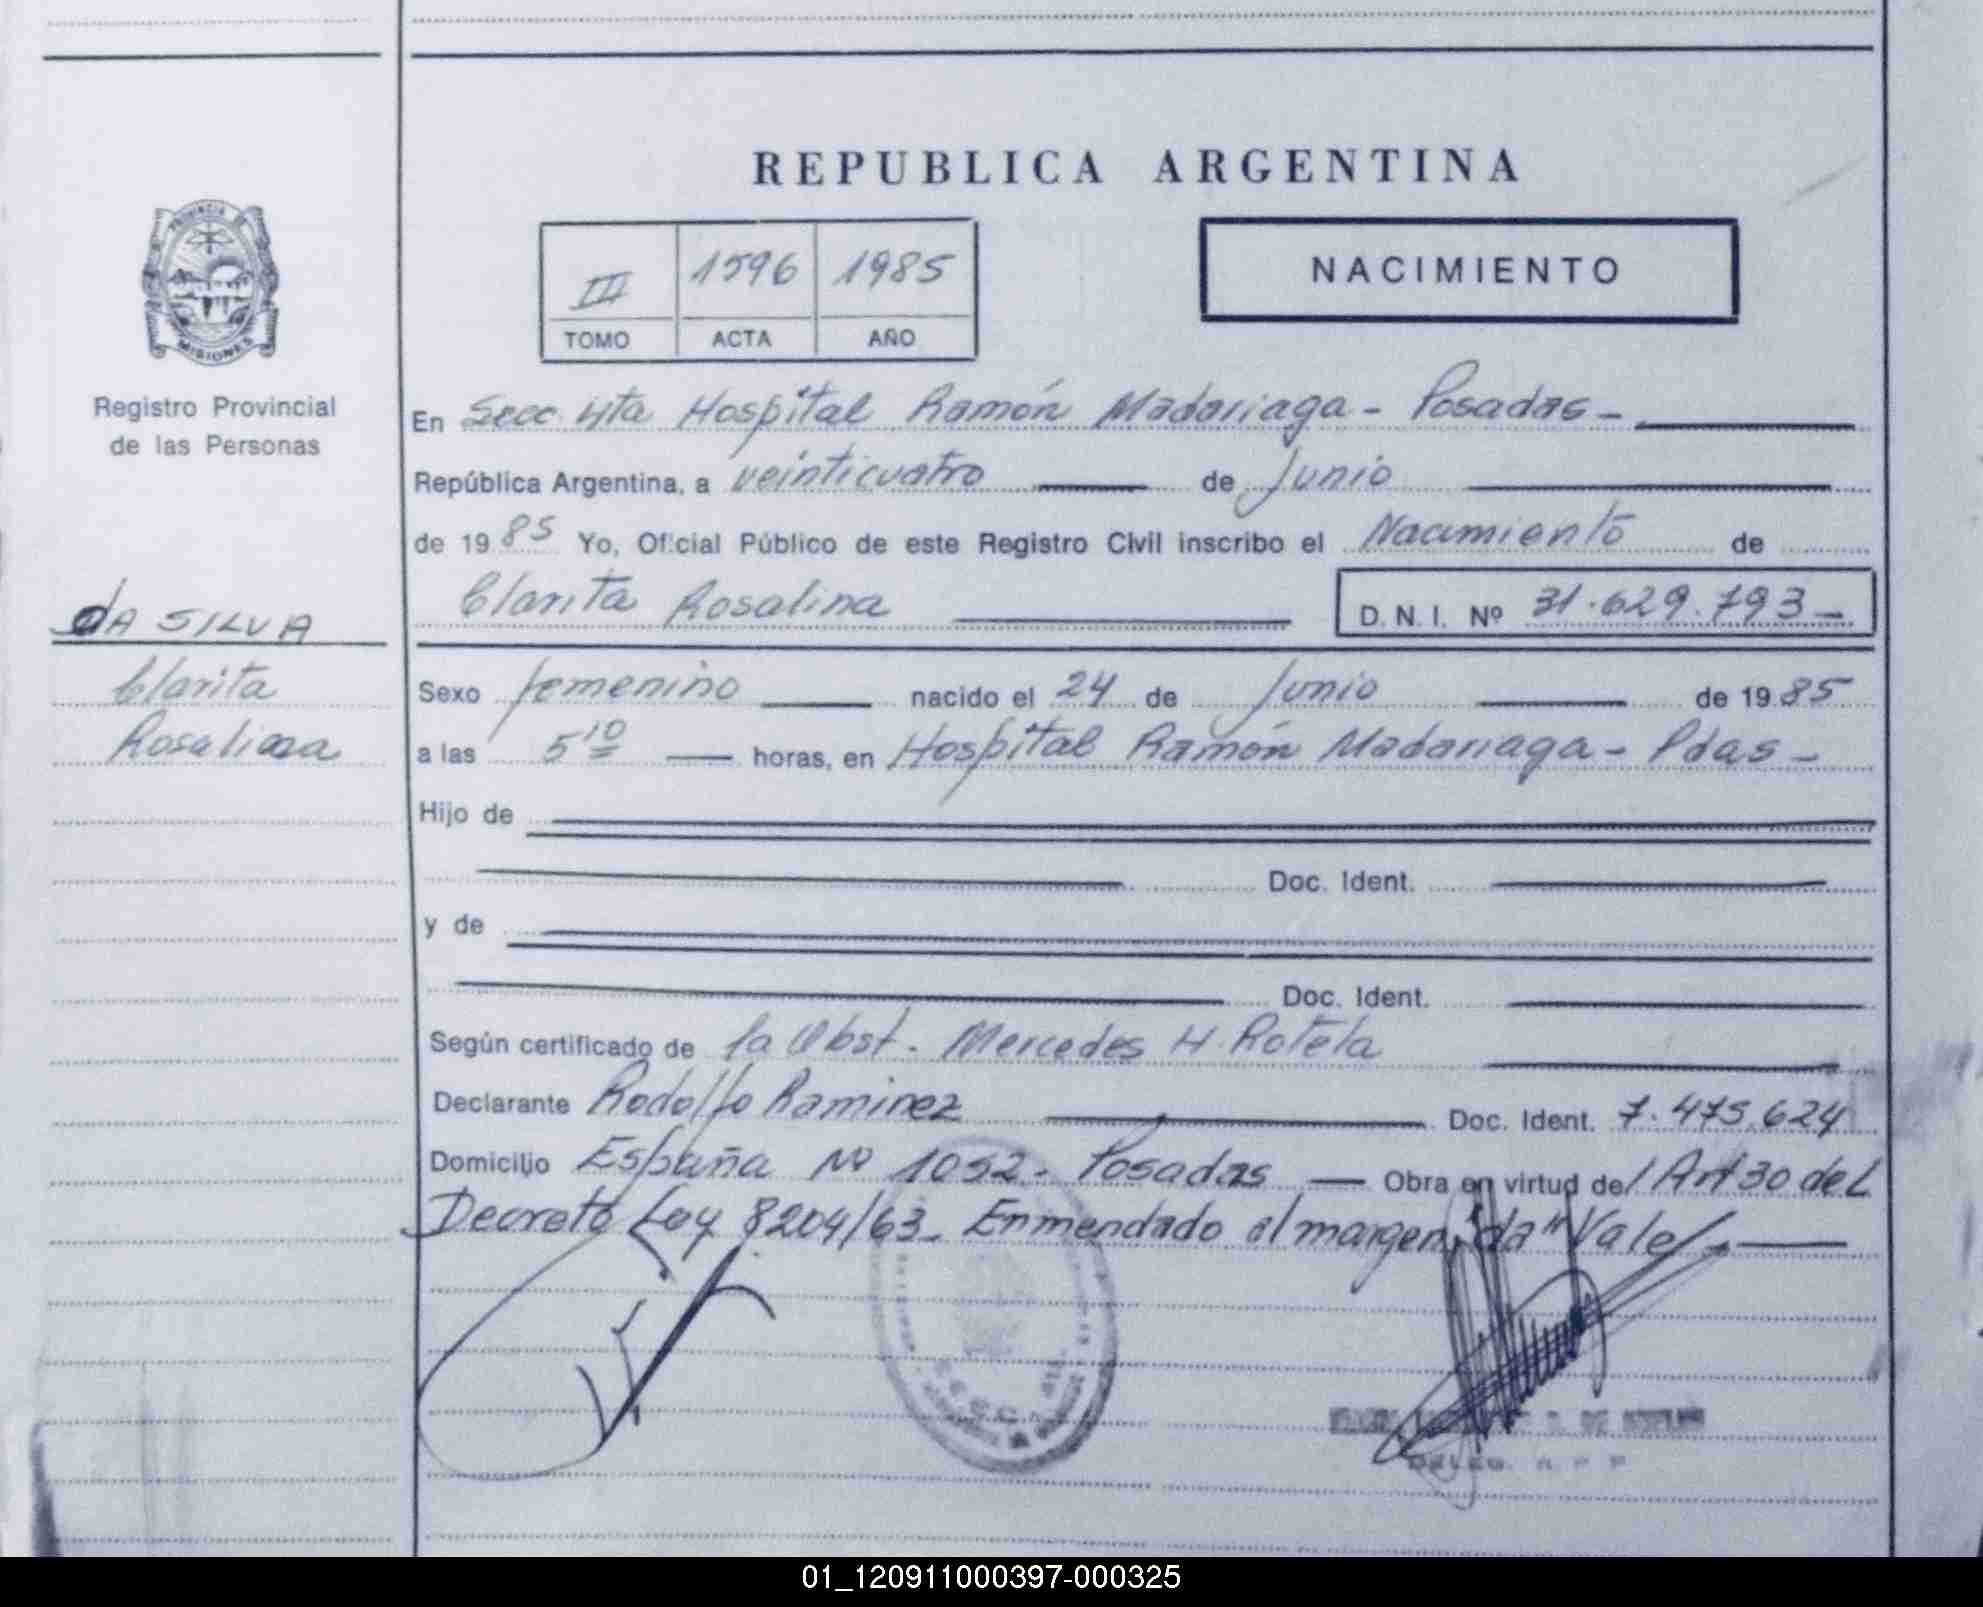 REPUBLICA ARGENTINA
PROVINCIA DE
MISIONES
Registro Provincial
de las Personas
III 1596 1985
TOMO ACTA AÑO
NACIMIENTO
En Secc 4ta Hospital Ramón Madariaga - Posadas -
República Argentina, a veinticuatro de Junio
de 1985 Yo, Oficial Público de este Registro Civil inscribo el Nacimiento de
Clarita Rosalina D.N.I. Nº 31.629.793-
dA SILVA
Clarita
Rosalina
Sexo femenino nacido el 24 de Junio de 1985
a las 5 10 horas, en Hospital Ramón Madariaga - Pdas -
Hijo de
Doc. Ident.
y de
Doc. Ident.
Según certificado de la Obst. Mercedes H. Rotela
Declarante Rodolfo Ramirez Doc. Ident. 7.475.624
Domicilio España Nº 1052 - Posadas — Obra en virtud del Art 30 del
Decreto Ley 8204/63 - Enmendado al margen "da" Vale -
01_120911000397-000325